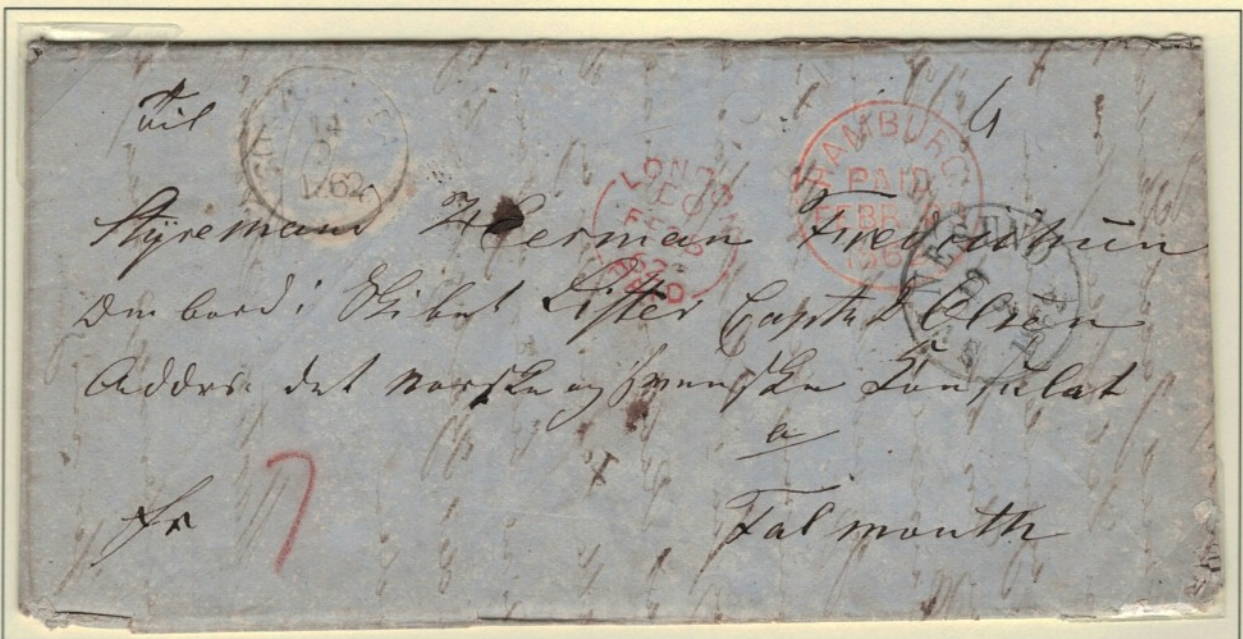 Til
14
1862
LONDON
EC
FEB
62
PAID
HAMBURG
PAID
FEBR
1862
Styremand Herman Fredriksen
Om bord i Skibet Lister Capt Olsen
Addrs. det norske og svenske Konsulat
a
Falmouth
fr 7